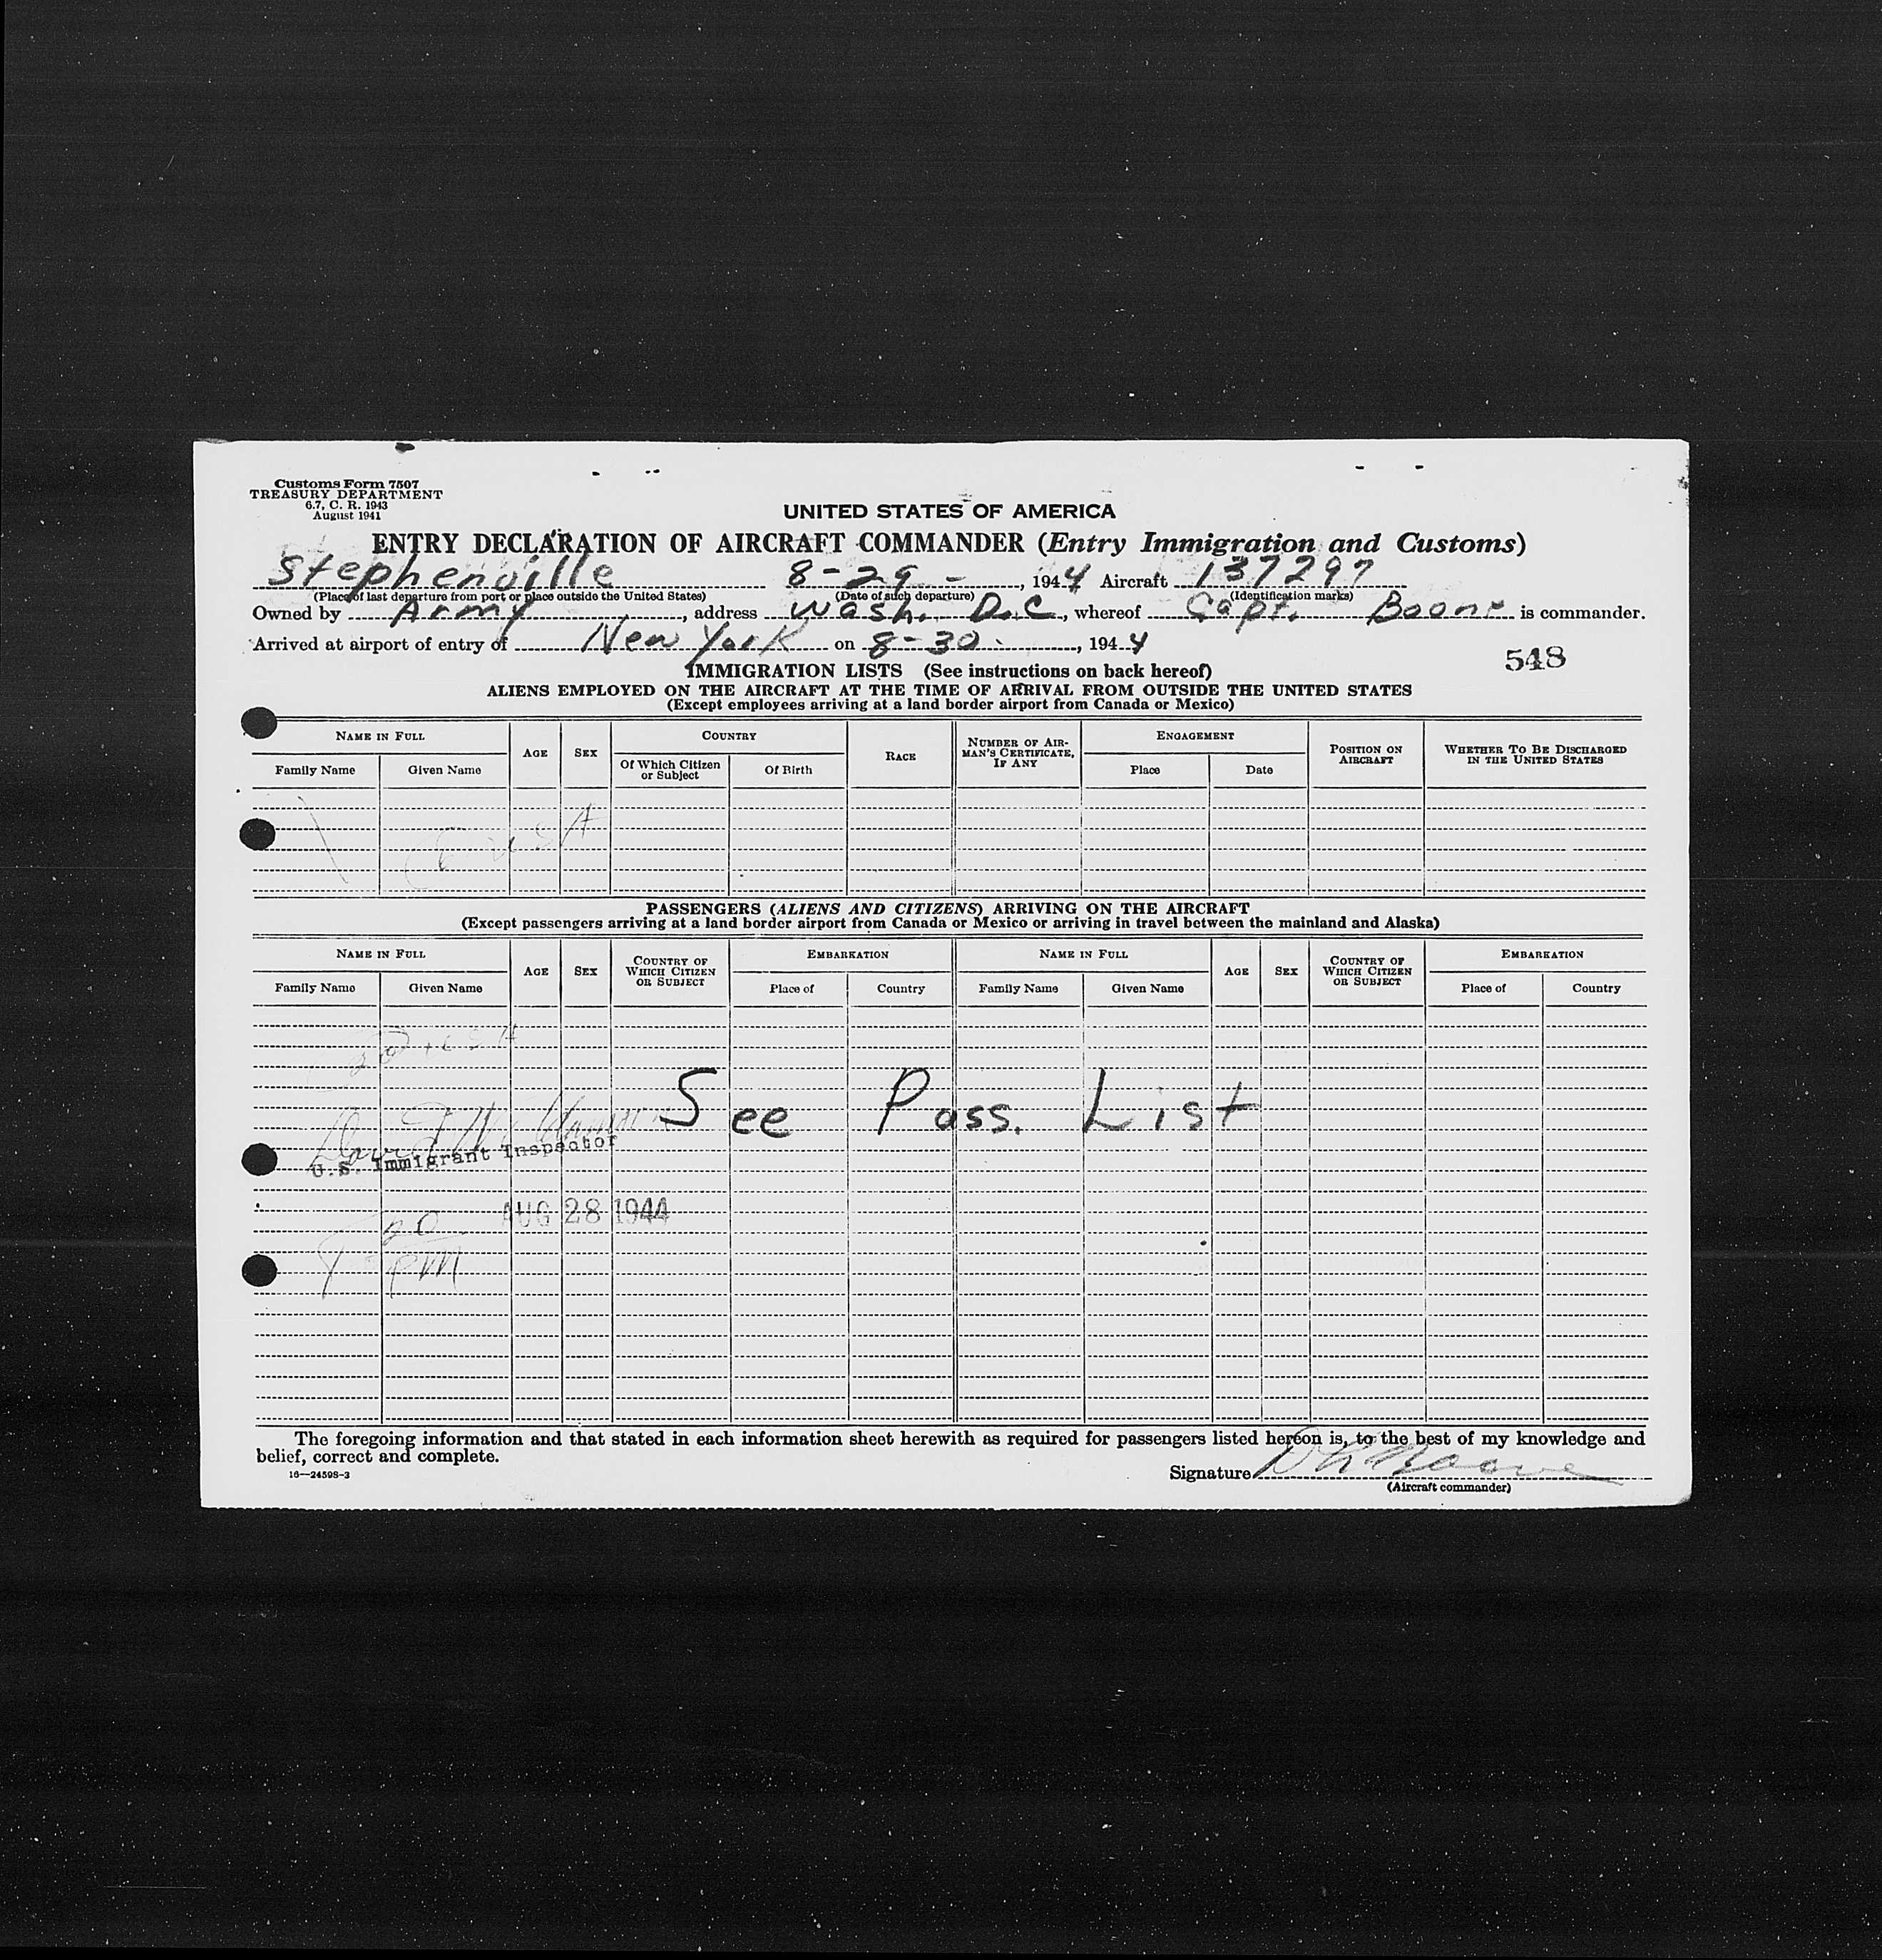 Customs Form 7507
TREASURY DEPARTMENT
6.7, C. R. 1943
August 1941
UNITED STATES OF AMERICA
ENTRY DECLARATION OF AIRCRAFT COMMANDER (Entry Immigration and Customs)
Stephenville 8-29-, 1944 Aircraft 137297
(Place of last departure from port or place outside the United States) (Date of such departure) (Identification marks)
Owned by Army, address Wash. D.C, whereof Capt. Boone is commander.
Arrived at airport of entry of New York on 8-30-, 1944
548
IMMIGRATION LISTS (See instructions on back hereof)
ALIENS EMPLOYED ON THE AIRCRAFT AT THE TIME OF ARRIVAL FROM OUTSIDE THE UNITED STATES
(Except employees arriving at a land border airport from Canada or Mexico)
NAME IN FULL AGE SEX COUNTRY RACE NUMBER OF AIRMAN'S CERTIFICATE, IF ANY ENGAGEMENT POSITION ON AIRCRAFT WHETHER TO BE DISCHARGED IN THE UNITED STATES
Family Name Given Name Of Which Citizen or Subject Of Birth Place Date
USA
PASSENGERS (ALIENS AND CITIZENS) ARRIVING ON THE AIRCRAFT
(Except passengers arriving at a land border airport from Canada or Mexico or arriving in travel between the mainland and Alaska)
NAME IN FULL AGE SEX COUNTRY OF WHICH CITIZEN OR SUBJECT EMBARKATION NAME IN FULL AGE SEX COUNTRY OF WHICH CITIZEN OR SUBJECT EMBARKATION
Family Name Given Name Place of Country Family Name Given Name Place of Country
See Pass. List
U.S. Immigrant Inspector
AUG 28 1944
20
PM
The foregoing information and that stated in each information sheet herewith as required for passengers listed hereon is, to the best of my knowledge and
belief, correct and complete.
16—24598-3
Signature
(Aircraft commander)